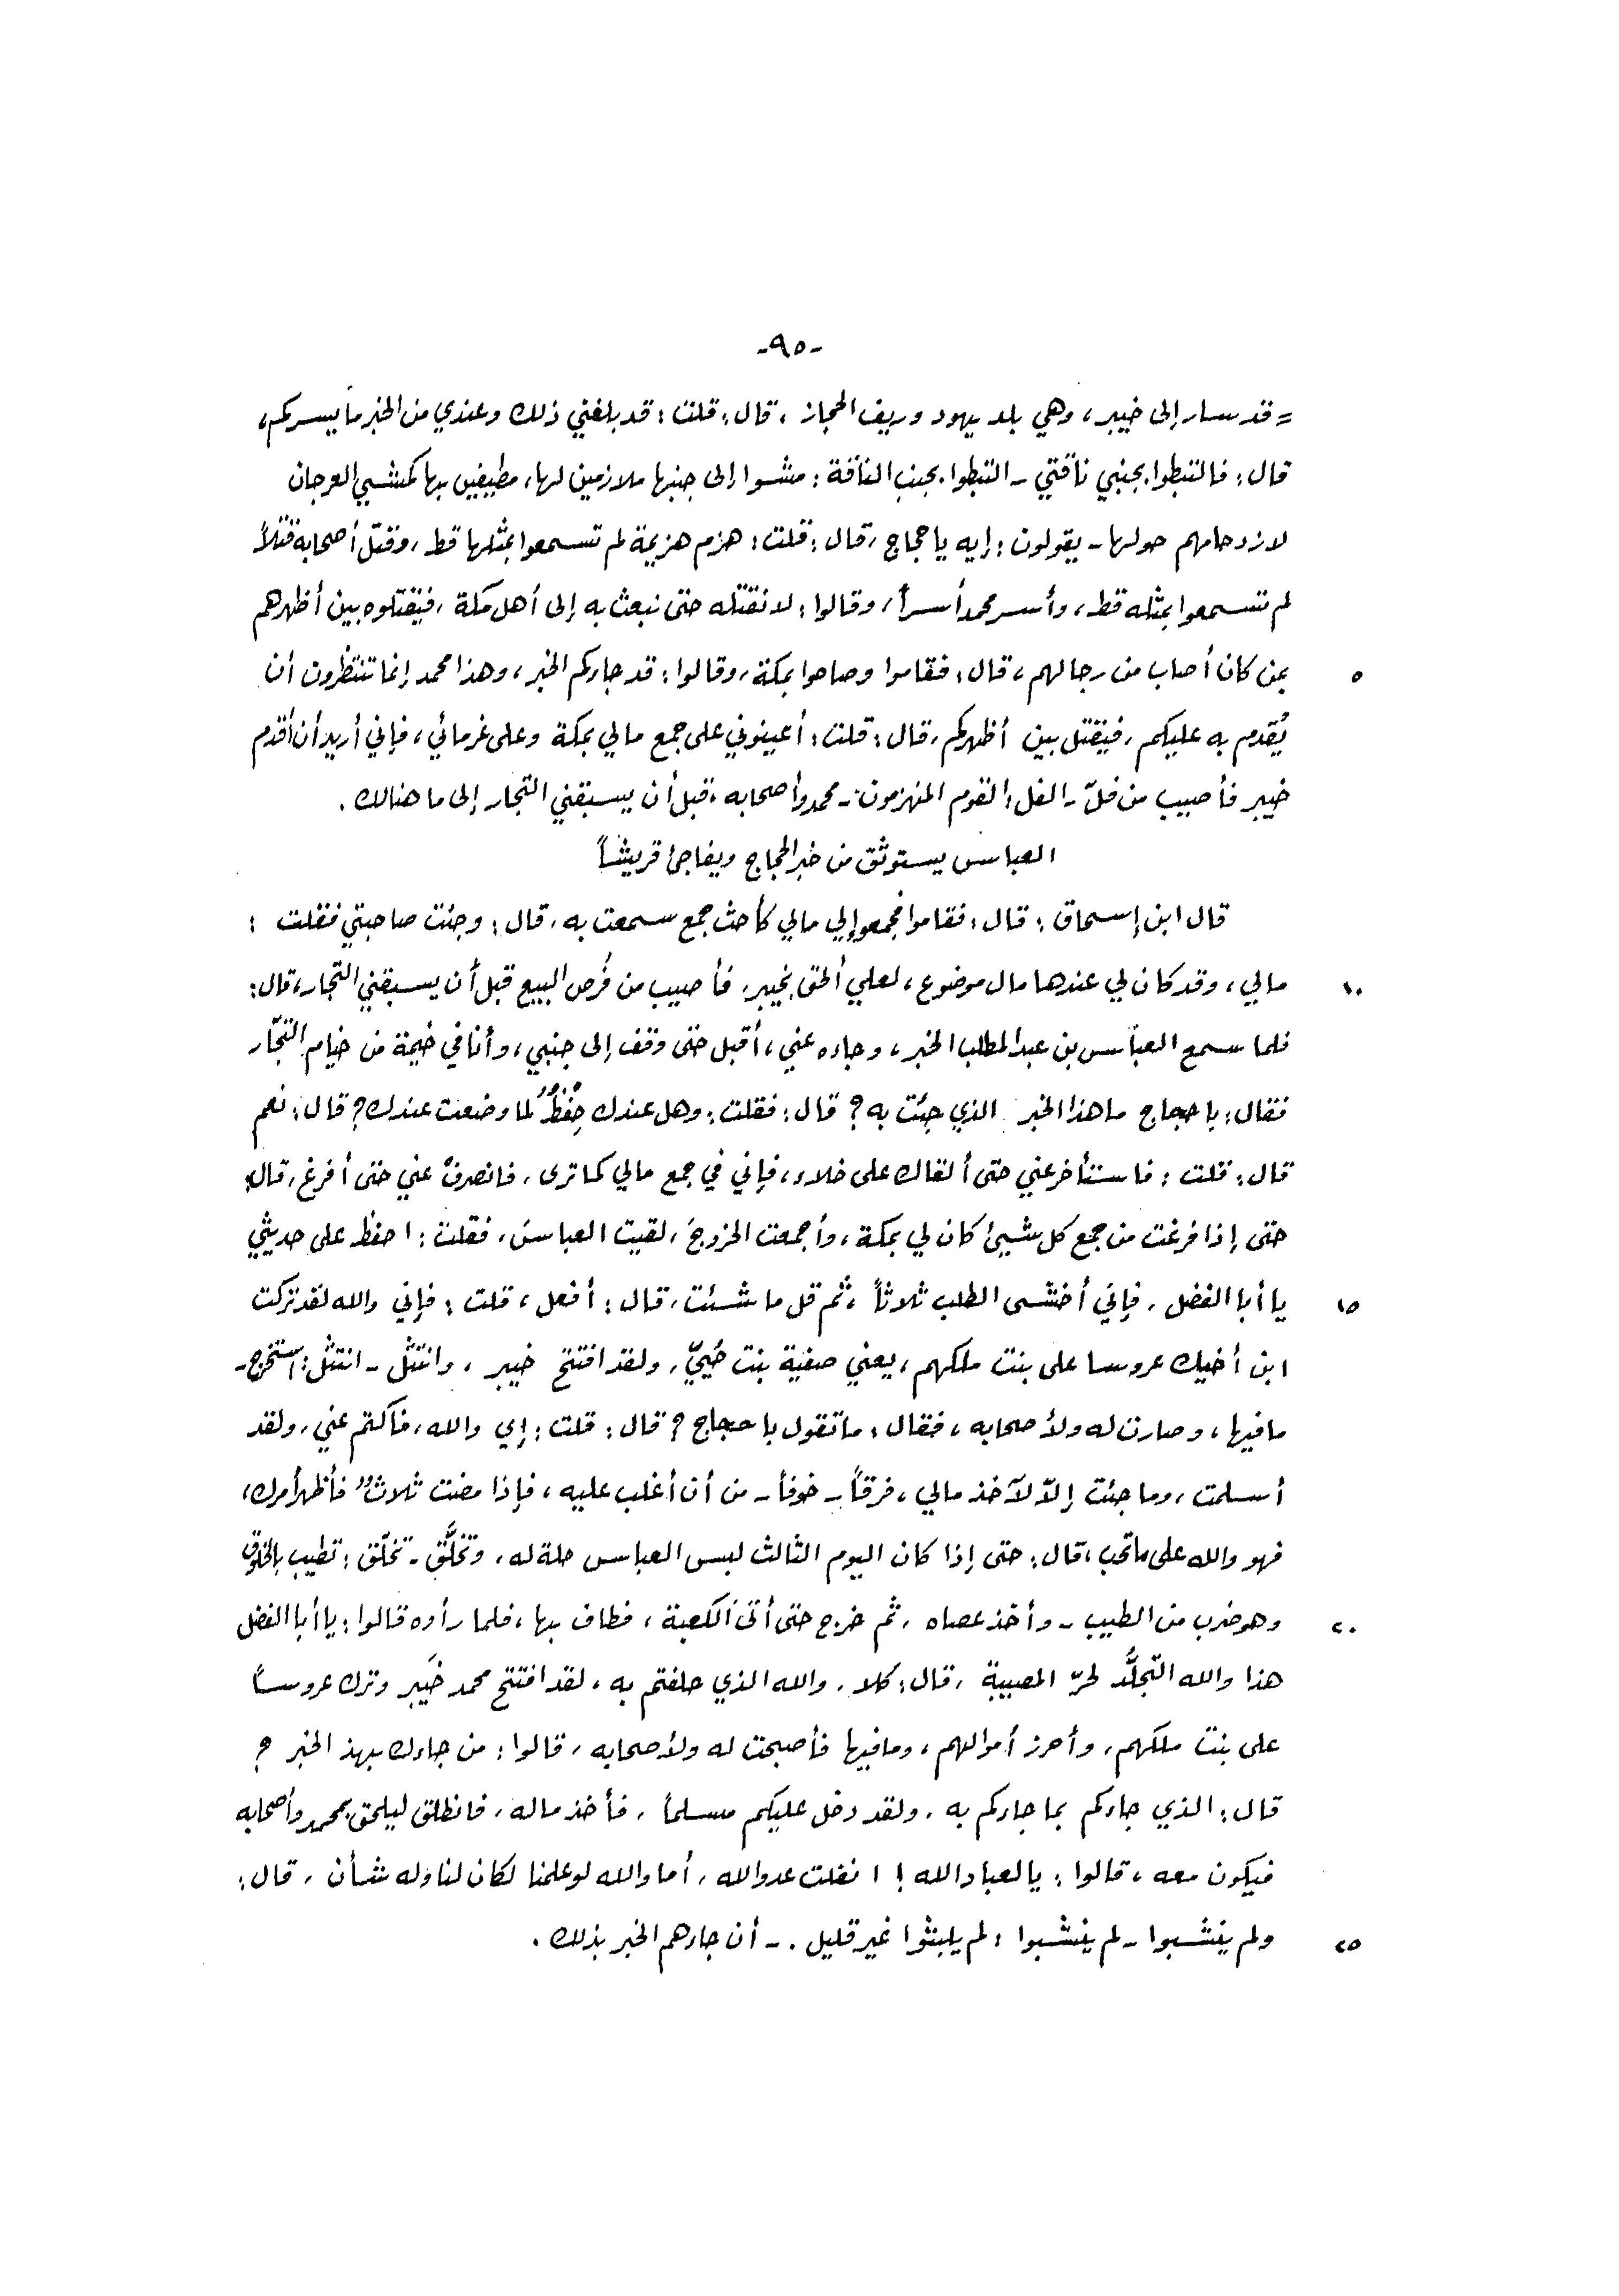 -٩٥-
= قد سار إلى خيبر، وهي بلد يهود وريف الحجاز، قال: قلت: قد بلغني ذلك وعندي من الخبر ما يسركم،
قال: فالتبطوا بجنبي ناقتي - التبطوا بجنب الناقة: مشوا إلى جنبها ملازمين لها، مطيفين بها كمشي العرجان
لازدحامهم حولها - يقولون: إيه يا حجاج، قال: قلت: هزم هزيمة لم تسمعوا بمثلها قط، وقتل أصحابه قتلاً
لم تسمعوا بمثله قط، وأسر محمد أسراً، وقالوا: لا نقتله حتى نبعث به إلى أهل مكة، فيقتلوه بين أظهرهم
٥ بمن كان أصاب من رجالهم، قال: فقاموا وصاحوا بمكة، وقالوا: قد جاءكم الخبر، وهذا محمد إنما تنتظرون أن
يُقدم به عليكم، فيقتل بين أظهركم، قال: قلت: أعينوني على جمع مالي بمكة وعلى غرمائي، فإني أريد أن أقدم
خيبر فأصيب من فلّ - الفل: القوم المنهزمون - محمد وأصحابه، قبل أن يسبقني التجار إلى ما هنالك.
العباس يستوثق من خبر الحجاج ويفاجئ قريشاً
قال ابن إسحاق: قال: فقاموا فجمعوا إلي مالي كأحث جمع سمعت به، قال: وجئت صاحبتي فقلت:
١٠ مالي، وقد كان لي عندها مال موضوع، لعلي ألحق بخيبر، فأصيب من فُرص البيع قبل أن يسبقني التجار، قال:
فلما سمع العباس بن عبد المطلب الخبر، وجاءه عني، أقبل حتى وقف إلى جنبي، وأنا في خيمة من خيام التجّار
فقال: يا حجاج ما هذا الخبر الذي جئت به؟ قال: فقلت: وهل عندك حِفْظٌ لما وضعت عندك؟ قال: نعم
قال: قلت: فاستأخر عني حتى ألقاك على خلاء، فإني في جمع مالي كما ترى، فانصرفْ عني حتى أفرغ، قال:
حتى إذا فرغت من جمع كل شيئ كان لي بمكة، وأجمعت الخروجَ، لقيت العباسَ، فقلت: احفظ على حديثي
١٥ يا أبا الفضل، فإني أخشى الطلب ثلاثاً، ثم قل ما شئت، قال: أفعل، قلت: فإني والله لقد تركت
ابن أخيك عروسا على بنت ملكهم، يعني صفية بنت حُييّ، ولقد افتتح خيبر، وانتثل - انتثل: استخرج -
ما فيها، وصارت له ولأصحابه، فقال: ما تقول يا حجاج؟ قال: قلت: إي والله، فاكتم عني، ولقد
أسلمت، وما جئت إلاّ لآخذ مالي، فرقاً - خوفاً - من أن أغلب عليه، فإذا مضت ثلاثٌ فأظهر أمرك،
فهو والله على ما تحب، قال: حتى إذا كان اليوم الثالث لبس العباس حلة له، وتخلَّق - تخلّق: تطيب بالخلوق
٢٠ وهو ضرب من الطيب - وأخذ عصاه، ثم خرج حتى أتى الكعبة، فطاف بها، فلما رأوه قالوا: يا أبا الفضل
هذا والله التجلُّد لحرّ المصيبة، قال: كلا، والله الذي حلفتم به، لقد افتتح محمد خيبر وترك عروساً
على بنت ملكهم، وأحرز أموالهم، وما فيها فأصبحت له ولأصحابه، قالوا: من جاءك بهذ الخبر؟
قال: الذي جاءكم بما جاءكم به، ولقد دخل عليكم مسلماً، فأخذ ماله، فانطلق ليلحق بمحمد وأصحابه
فيكون معه، قالوا: يا لعباد الله! انفلت عدو الله، أما والله لو علمنا لكان لنا وله شأن، قال:
٢٥ ولم ينشبوا - لم ينشبوا: لم يلبثوا غير قليل. - أن جاءهم الخبر بذلك.